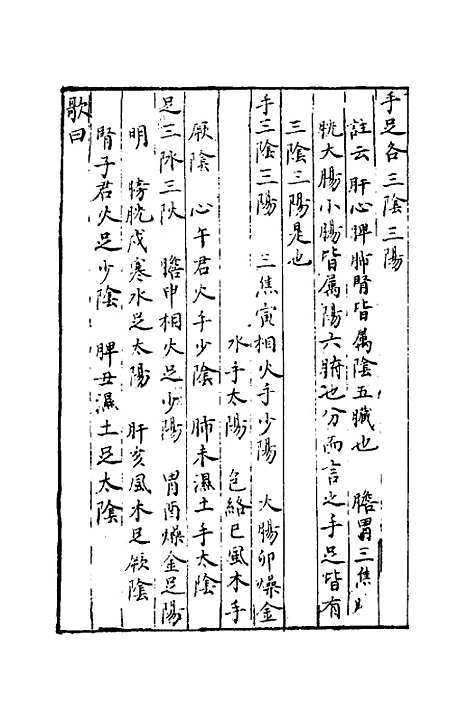 手足各三陰三陽
註云肝心脾肺腎皆属陰五臟也　膽胃三焦
胱大腸小腸皆属陽六腑也分而言之手足皆有
三陰三陽是也
手三陰三陽　三焦寅相火手少陽　大腸卯燥金
水手太陽　包絡巳風木手
厥陰　心午君火手少陰　肺未濕土手太陰
足三三　膽申相火足少陽　胃酉燥金足陽
明　膀胱戌寒水足太陽　肝亥風木足厥陰
腎子君火足少陰　脾丑濕土足太陰
歌曰